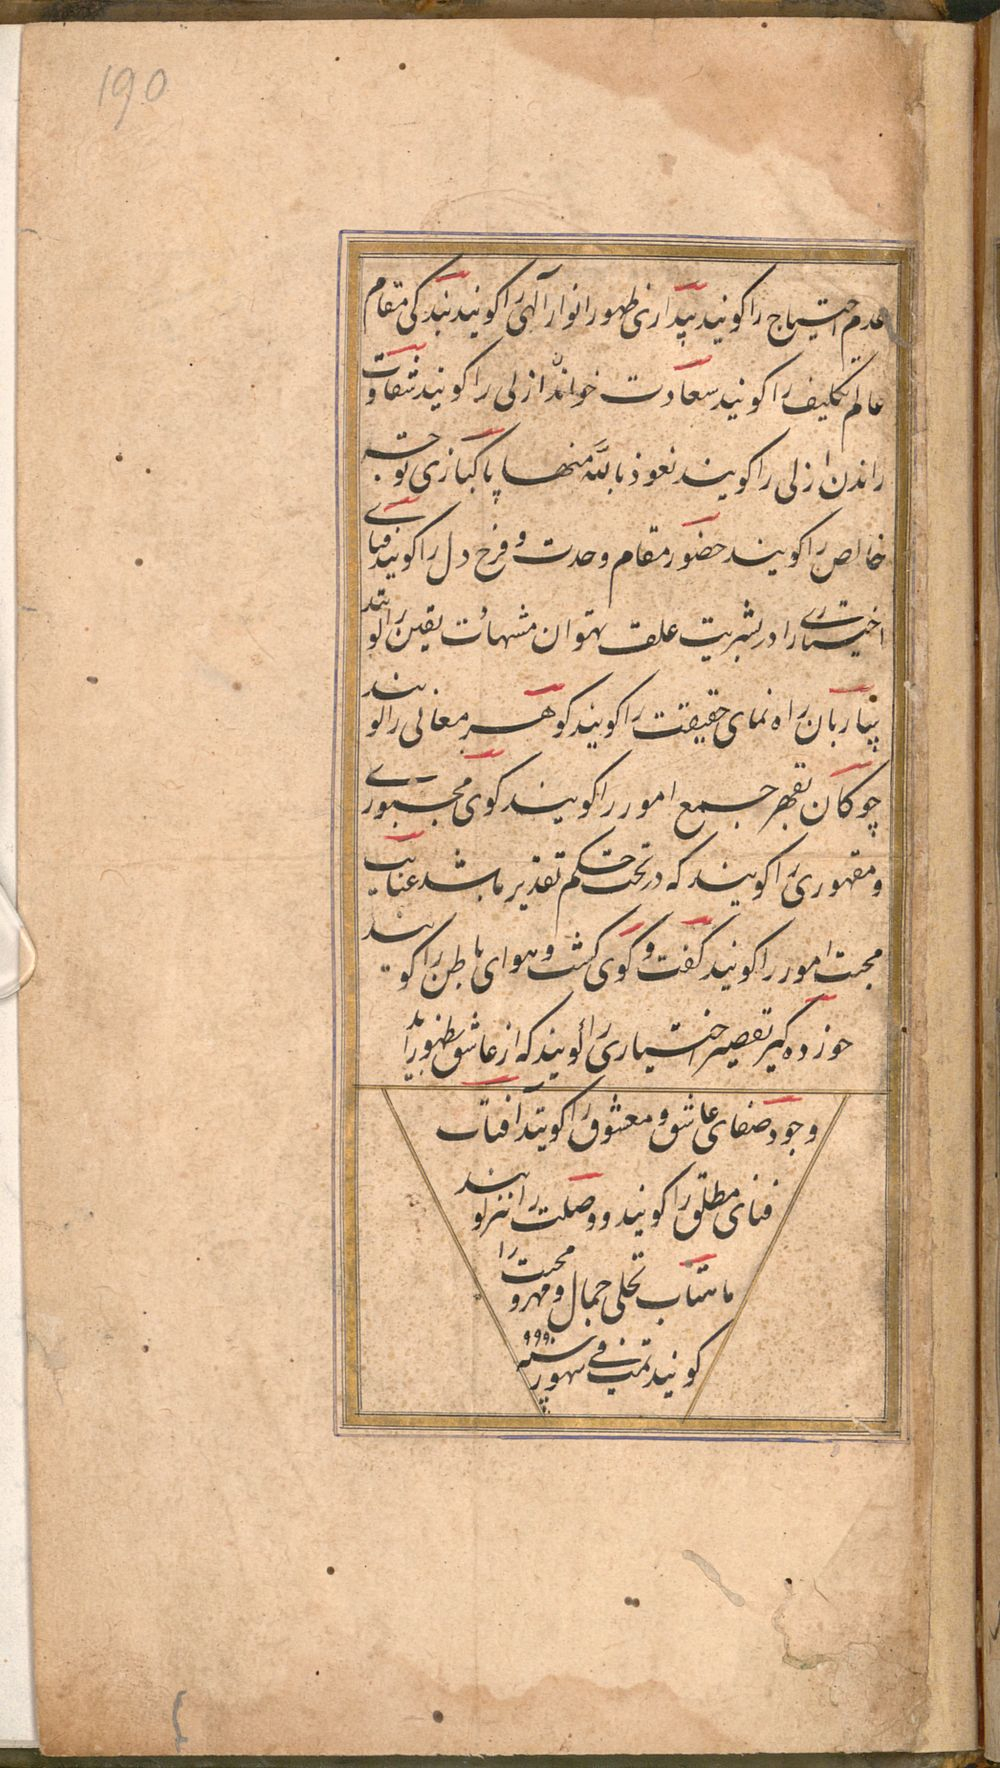 190
عدم احتیاج را کویند بیداری ظهور انوار آلهی را کویند بندکی مقام
عالم تکلیف را کویند سعادت خواندن ازلی را کویند شقاوت
راندن ازلی را کویند نعوذ بالله منها پاکبازی توجه
خالص را کویند حضور مقام وحدت و فرح دل را کویند
اختیاری را در بشریت یقین را کویند
راه نمای حقیقت را کویند کوهر معانی را کویند
چوکان تقهر جمع امور را کویند کوی مجبوری
و مقهوری را کویند که در تحت حکم تقدیر باشد عنایت
محبت امور را کویند کفت و کوی کشت و هوای باطن را کویند
تقصیر اختیاری را کویند که از عاشق بظهور آید
وجود صفای عاشق و معشوق را کویند آفتاب
فنای مطلق را کویند و وصلت را نیز کویند
ماهتاب تجلی جمال و مهر و محبت را
کویند تمت فی شهور سنه ۹۹۹